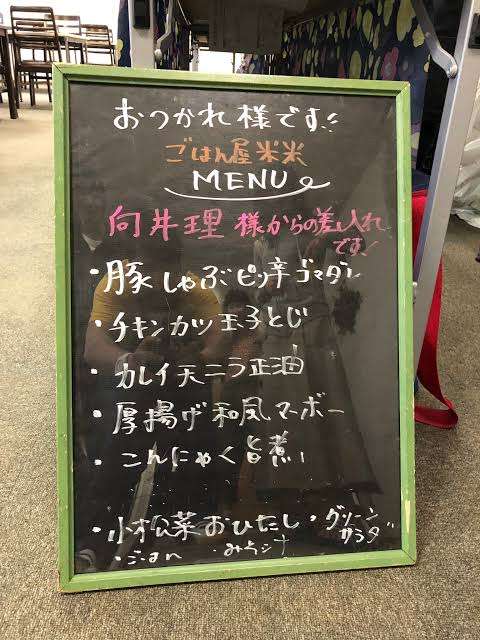 おつかれ様です!
ごはん屋米米
MENU
向井理様からの差し入れ
です!
・豚しゃぶピリ辛ゴマダレ
・チキンカツ玉子とじ
・カレイ天ニラ正油
・厚揚げ和風マーボー
・こんにゃく旨煮
・小松菜おひたし・グリーン
サラダ
・ごはん ・みそ汁